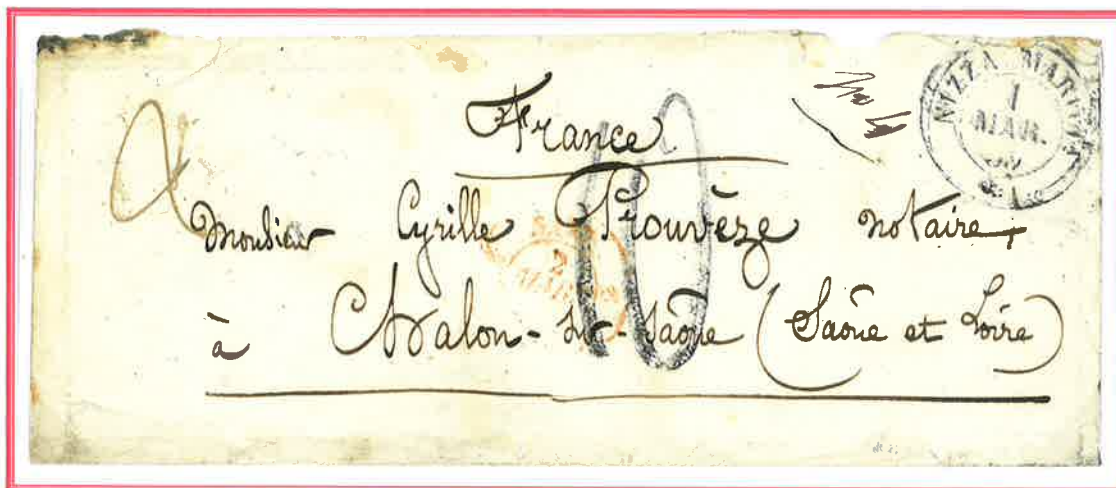 NIZZA MARITT.
1
MAR.
France
10
Monsieur Cyrille Prouvèze notaire,
2
à Chalon-sur-Saône (Saône et Loire)